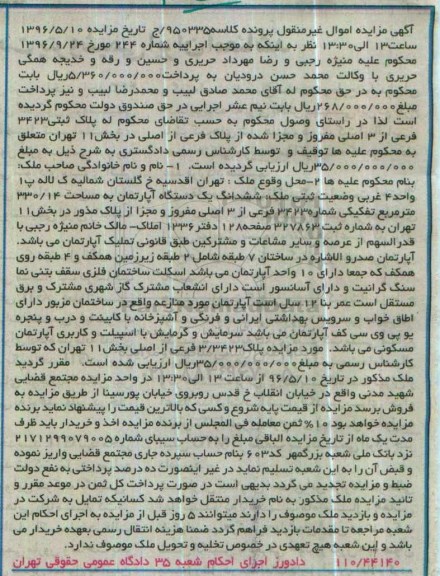 آگهی مزایده اموال غیرمنقول پرونده کلاسه۹۵۰۳۳۵/ج تاریخ مزایده ۱۳۹۶/۵/۱۰
ساعت۱۳ الی۱۳:۳۰ نظر به اینکه به موجب اجراییه شماره ۲۴۴ مورخ ۱۳۹۶/۹/۲۴
محکوم علیه منیژه رجبی و رضا مهرداد حریری و حسین و رقه و خدیجه همگی
حریری با وکالت محمد حسن درودیان به پرداخت۵/۳۶۰/۰۰۰/۰۰۰ریال بابت
محکوم به در حق محکوم له آقای محمد صادق لبیب و محمدرضا لبیب و نیز پرداخت
مبلغ۲۶۸/۰۰۰/۰۰۰ریال بابت نیم عشر اجرایی در حق صندوق دولت محکوم گردیده
است لذا در راستای وصول محکوم به حسب تقاضای محکوم له پلاک ثبتی۳۴۲۳
فرعی از ۳ اصلی مفروز و مجزا شده از پلاک فرعی از اصلی در بخش۱۱ تهران متعلق
به محکوم علیه ها توقیف و توسط کارشناس رسمی دادگستری به شرح ذیل به مبلغ
۳۵/۰۰۰/۰۰۰/۰۰۰ریال ارزیابی گردیده است. ۱- نام و نام خانوادگی صاحب ملک:
بنام محکوم علیه ها ۲-محل وقوع ملک : تهران اقدسیه خ گلستان شمالیه ک لاله پ۱
واحد۴ غربی وضعیت ثبتی ملک: ششدانگ یک دستگاه آپارتمان به مساحت ۳۳۰/۱۴
مترمربع تفکیکی شماره۳۴۲۳ فرعی از ۳ اصلی مفروز و مجزا از پلاک مذور در بخش۱۱
تهران به شماره ثبت ۳۲۷۸۶۳ صفحه۱۲۸ دفتر۱۳۳۶ املاک- مالک خانم منیژه رجبی با
قدر السهم از عرصه و سایر مشاعات و مشترکین طبق قانونی تملیک آپارتمان می باشد.
آپارتمان صدرو الاشاره در ساختان ۷ طبقه شامل۲ طبقه زیرزمین همکف و ۴ طبقه روی
همکف که جمعا دارای ۱۰ واحد آپارتمان می باشد اسکلت ساختمان فلزی سقف بتنی نما
سنگ گرانیت و دارای آسانسور است دارای انشعاب مشترک گاز شهری مشترک و برق
مستقل است عمر بنا ۱۲ سال است آپارتمان مورد منازعه واقع در ساختمان مزبور دارای
اطاق خواب و سرویس بهداشتی ایرانی و فرنگی و آشپزخانه با کابینت و درب و پنجره
یو پی وی سی کف آپارتمان می باشد سرمایش و گرمایش با اسپیلت و کاربری آپارتمان
مسکونی می باشد. مورد مزایده پلاک۳/۳۴۲۳ فرعی از اصلی بخش۱۱ تهران که توسط
کارشناس رسمی به مبلغ۳۵/۰۰۰/۰۰۰/۰۰۰ریال ارزیابی شده است. مقرر گردید
ملک مذکور در تاریخ ۹۶/۵/۱۰ از ساعت ۱۳ الی۱۳:۳۰ در واحد مزایده مجتمع قضایی
شهید مدنی واقع در خیابان انقلاب خ قدس روبروی خیابان پورسینا از طریق مزایده به
فروش برسد مزایده از قیمت پایه شروع و کسی که بالاترین قیمت را پیشنهاد نماید برنده
مزایده خواهد بود ۱۰% ثمن معامله فی المجلس از برنده مزایده اخذ و خریدار باید ظرف
مدت یک ماه از تاریخ مزایده الباقی مبلغ را به حساب سیبای شماره۲۱۷۱۲۹۹۰۷۹۰۰۵
نزد بانک ملی شعبه بزرگمهر کد۶۰۳ بنام حساب سپرده جاری مجتمع قضایی واریز نموده
و قبض آن را به این شعبه تسلیم نماید در غیر اینصورت ده درصد پرداختی به نفع دولت
ضبط و مزایده تجدید می گردد بدیهی است در صورت پرداخت کل ثمن در موعد مقرر و
تائید مزایده ملک مذکور به نام خریدار منتقل خواهد شد کسانیکه تمایل به شرکت در
مزایده و بازدید ملک موصوف را دارند میتوانند ۵ روز قبل از مزایده به اجرای احکام این
شعبه مراجعه تا مقدمات بازدید فراهم گردد ضمنا هزینه انتقال رسمی بعهده خریدار می
باشد و این شعبه هیچ تعهدی در خصوص تخلیه و تحویل ملک موصوف ندارد.
۱۱۰/۴۴۱۴۰ دادورز اجرای احکام شعبه ۳۵ دادگاه عمومی حقوقی تهران